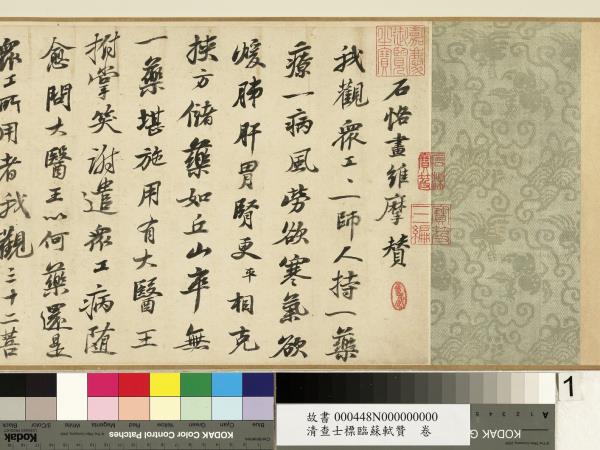 嘉慶御覽之寶
石渠寶笈
寶笈三編
石恪畫維摩贊
我觀衆工〻一師人持一藥
療一病風勞欲寒氣欲
煖肺肝胃腎更平相克
挾方儲藥如丘山卒無
一藥堪施用有大醫王
拊掌笑謝遣衆工病隨
愈問大醫王以何藥還是
衆工所用者我觀三十二菩
1
故書 000448N000000000
清查士標臨蘇軾贊 卷
KODAK Color Control Patches
Blue Cyan Green Yellow Red Magenta White Black
Kodak
KODAK G
A